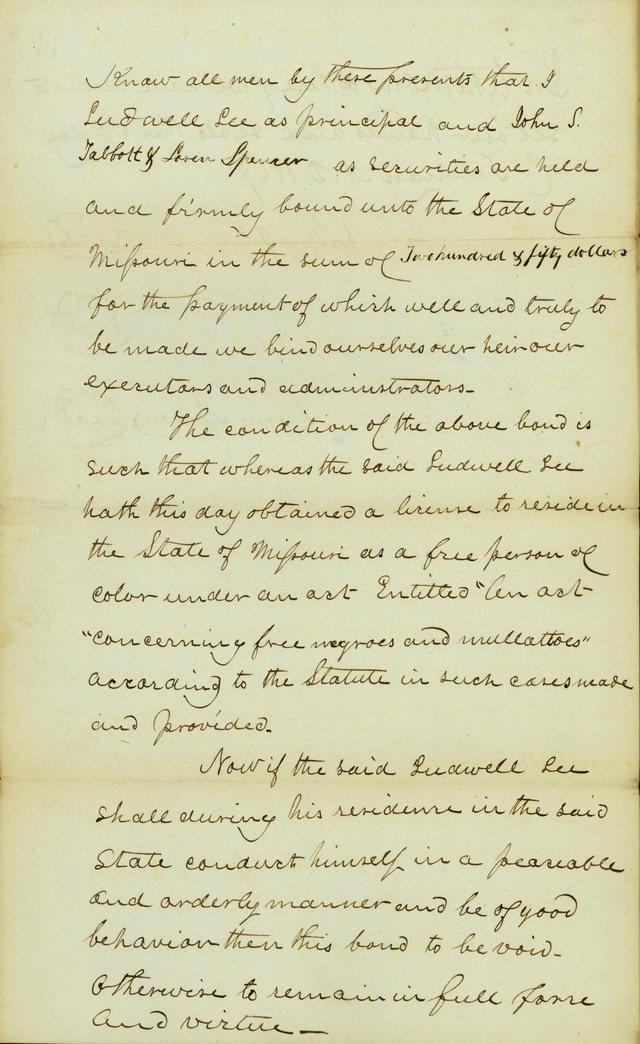 Know all men by these presents that I
Ludwell Lee as principal and John S.
Tabbott & Loren Spencer as securities are held
and firmly bound unto the State of
Missouri in the sum of Two hundred & fifty dollars
for the payment of which well and truly to
be made we bind ourselves our heir our
executors and administrators.
The condition of the above bond is
such that whereas the said Ludwell Lee
hath this day obtained a license to reside in
the State of Missouri as a free person of
color under an act Entitled "An act
"concerning free negroes and mullattoes"
according to the Statute in such cases made
and provided.
Now if the said Ludwell Lee
shall during his residence in the said
State conduct himself in a peaceable
and orderly manner and be of good
behavior then this bond to be void-
Otherwise to remain in full force
and virtue—